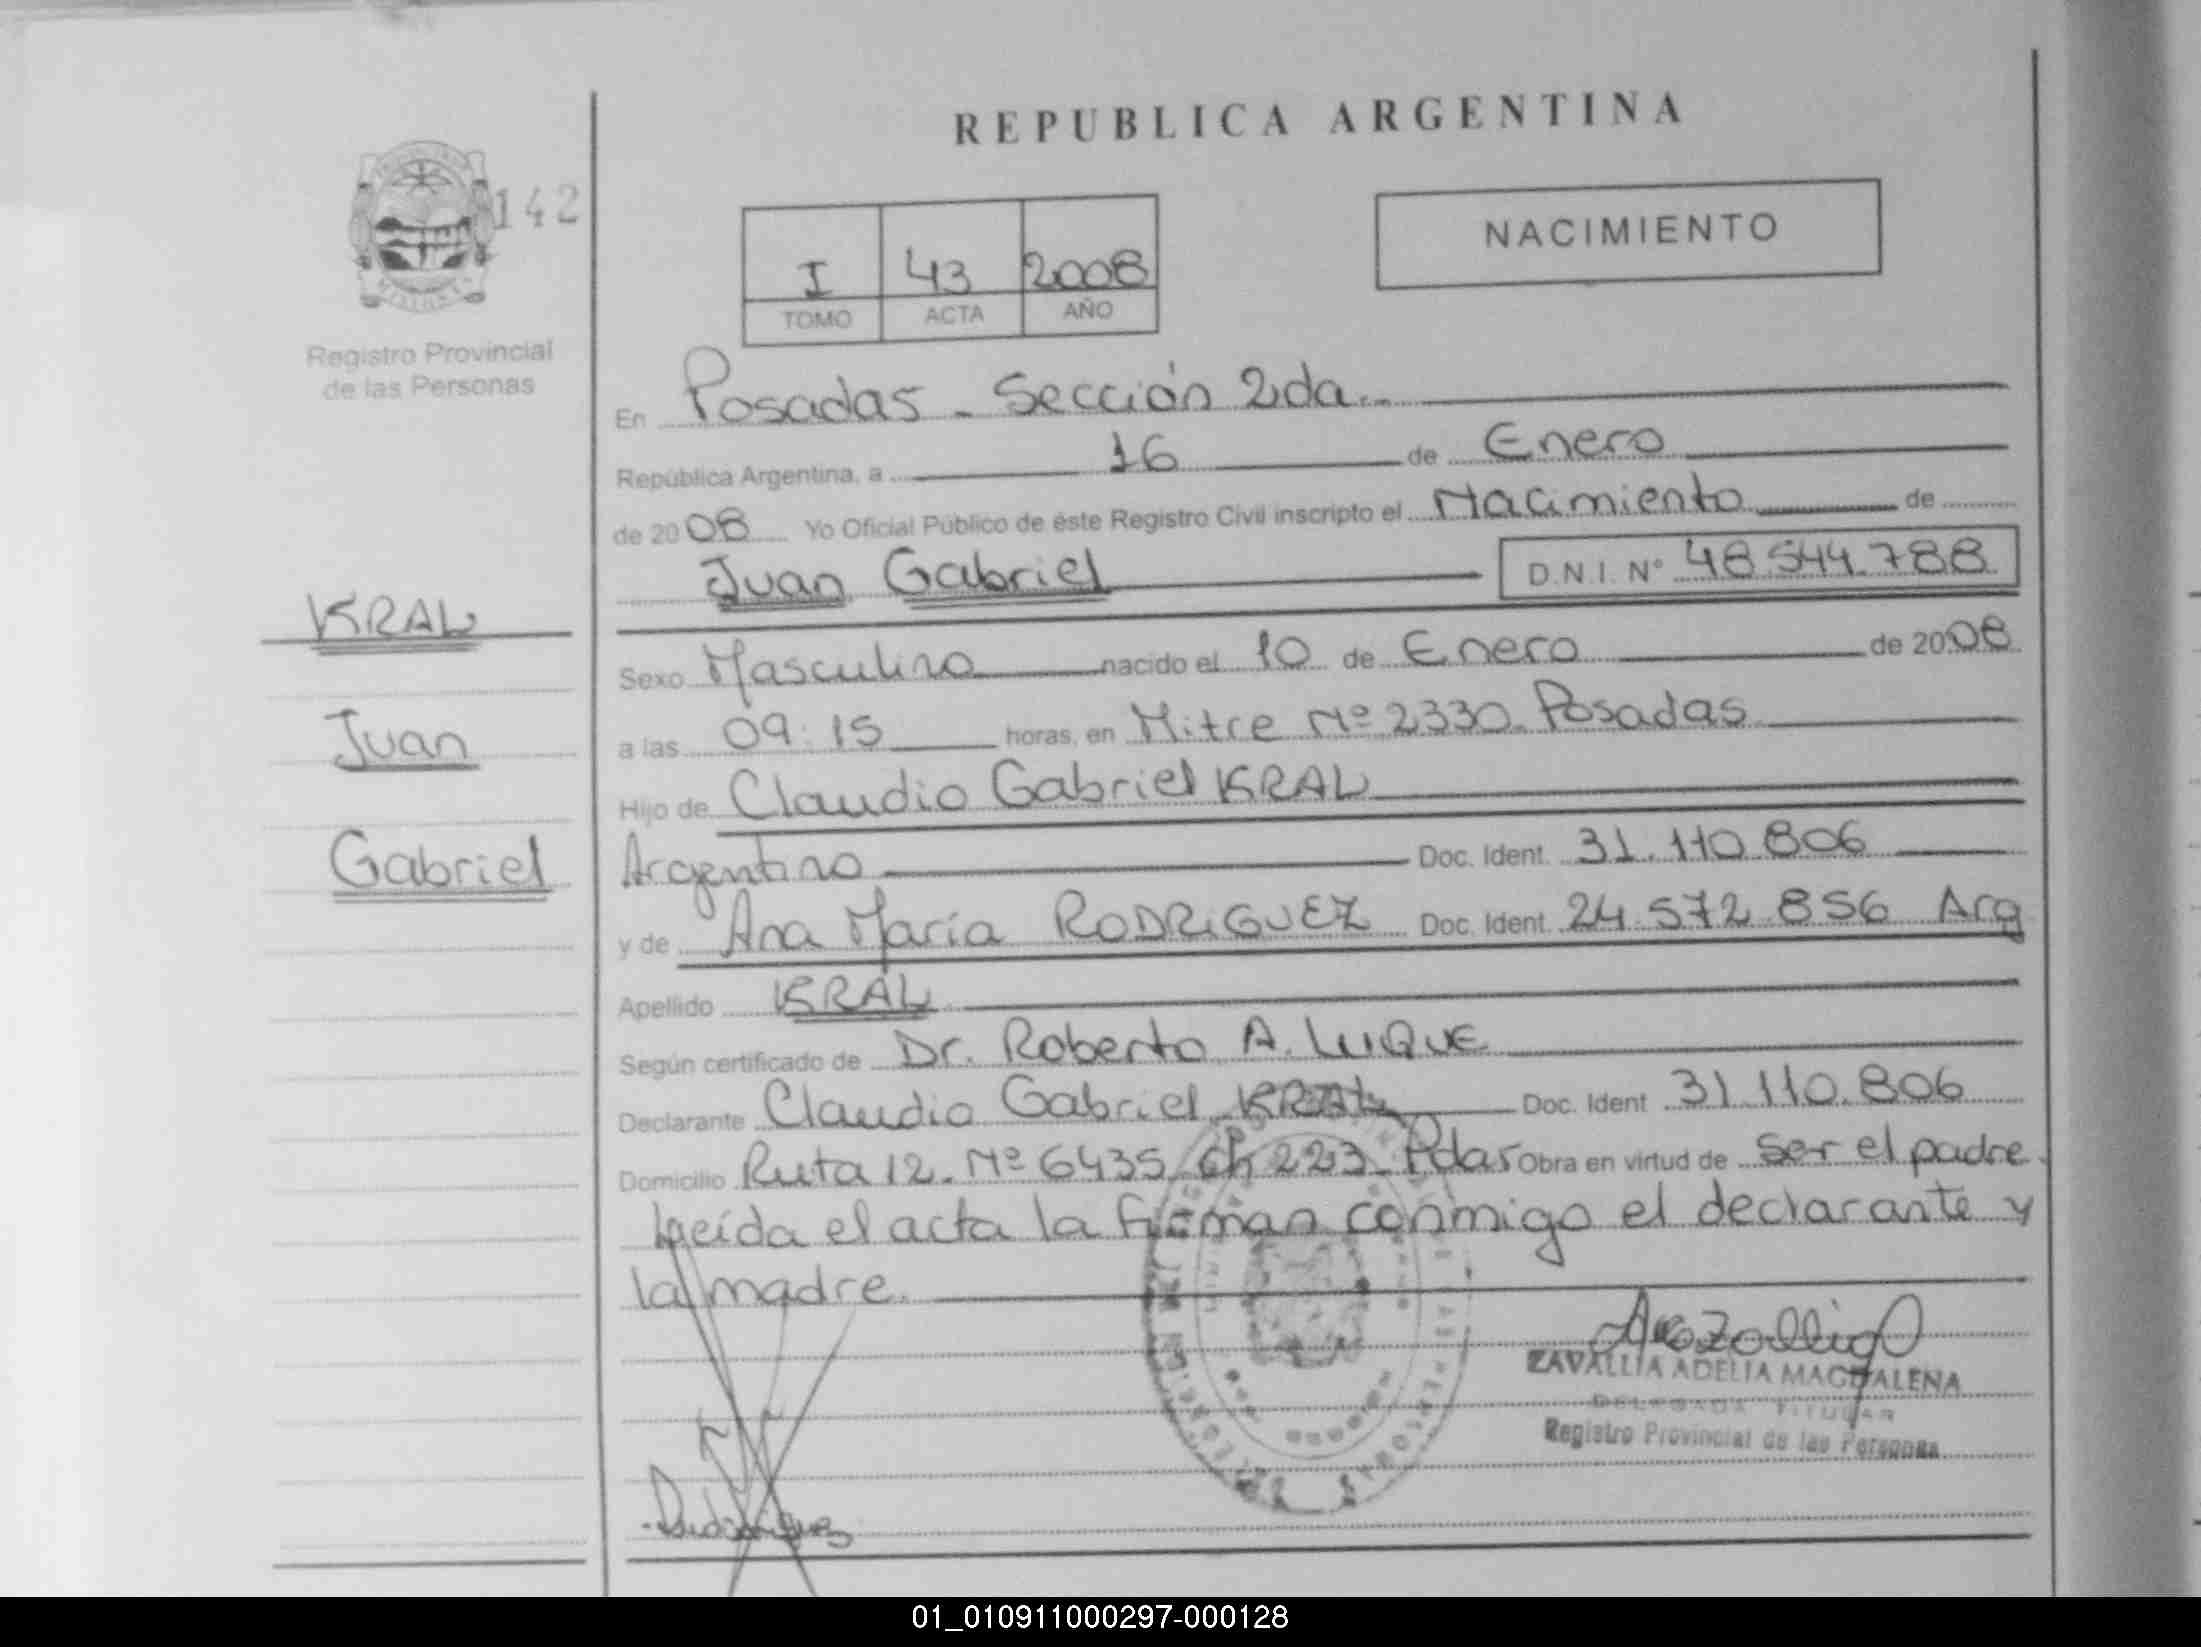 REPUBLICA ARGENTINA
142
NACIMIENTO
I 43 2008
TOMO ACTA AÑO
Registro Provincial
de las Personas
En Posadas - Sección 2da.
República Argentina, a 16 de Enero
de 2008 Yo Oficial Público de éste Registro Civil inscripto el Nacimiento de
Juan Gabriel D.N.I. Nº 48.544.788
KRAL
Juan
Gabriel
Sexo Masculino nacido el 10 de Enero de 2008
a las 09:15 horas, en Mitre Nº 2330. Posadas
Hijo de Claudio Gabriel KRAL
Argentino Doc. Ident. 31.110.806
y de Ana María RODRIGUEZ Doc. Ident. 24.572.856 Arg
Apellido KRAL
Según certificado de Dr. Roberto A. LUQUE
Declarante Claudio Gabriel KRAL Doc. Ident 31.110.806
Domicilio Ruta 12. Nº 6435 Ch 223 Pdas Obra en virtud de ser el padre.
Leída el acta la firman conmigo el declarante y
la madre.
ZAVALLIA ADELIA MAGDALENA
DELEGADA TITULAR
Registro Provincial de las Personas
01_010911000297-000128